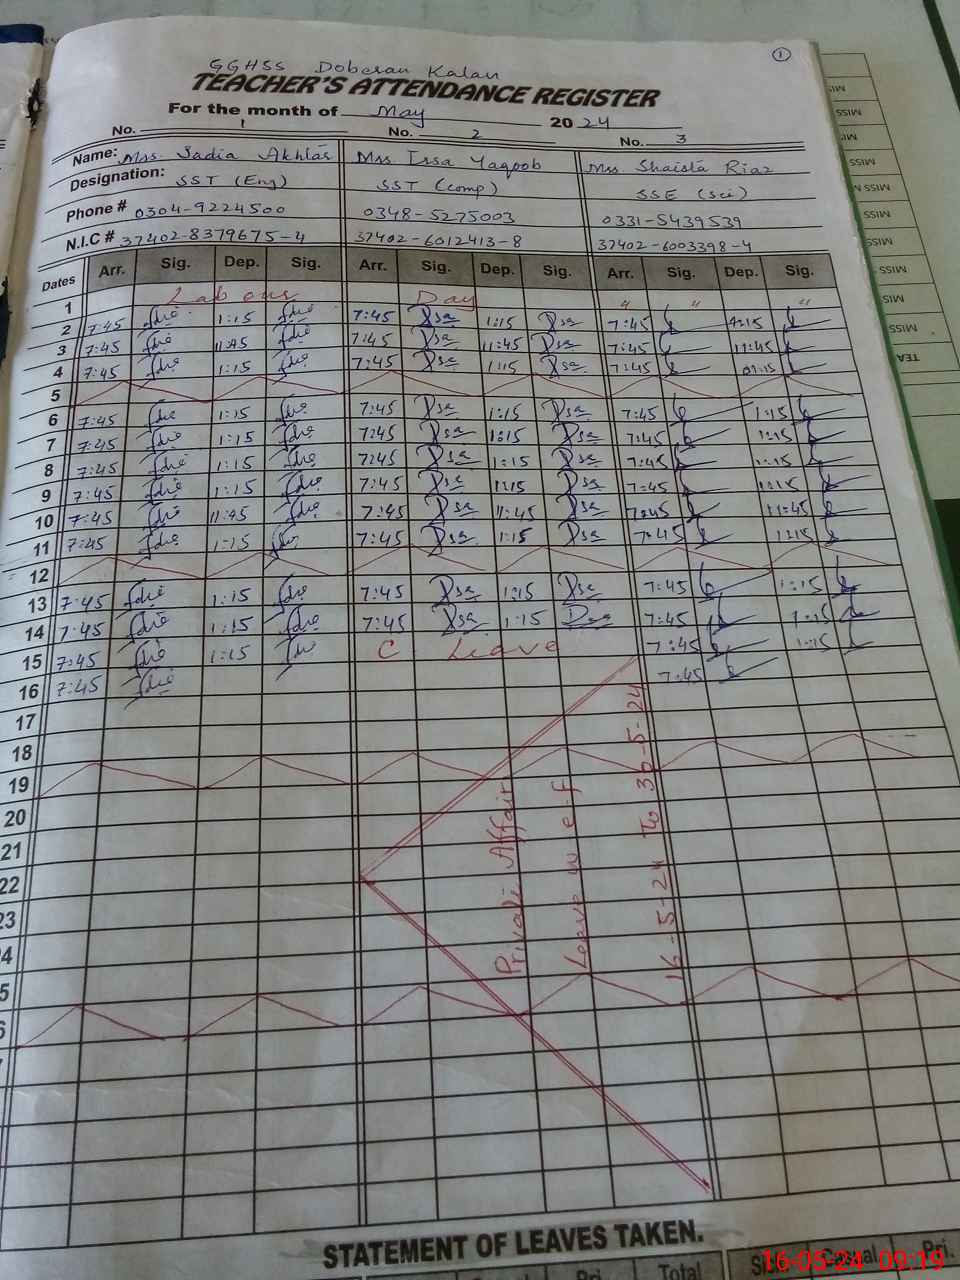 1
GGHSS Doberan Kalan
TEACHER'S ATTENDANCE REGISTER
For the month of May 2024
No. 1 No. 2 No. 3
Name: Mrs. Sadia Akhtar Mrs Issa Yaqoob Mrs Shaista Riaz
Designation: SST (Eng) SST (comp) SSE (Sci)
Phone # 0304-9224500 0348-5275003 0331-5439539
N.I.C # 37402-8379675-4 37402-6012413-8 37402-6003398-4
Dates Arr. Sig. Dep. Sig. Arr. Sig. Dep. Sig. Arr. Sig. Dep. Sig.
1 Labour Day " " "
2 7:45 1:15 7:45 1:15 7:45 1:15
3 7:45 11:45 7:45 11:45 7:45 11:45
4 7:45 1:15 7:45 1:15 7:45 01:15
5
6 7:45 1:15 7:45 1:15 7:45 1:15
7 7:45 1:15 7:45 1:15 7:45 1:15
8 7:45 1:15 7:45 1:15 7:45 1:15
9 7:45 1:15 7:45 1:15 7:45 1:15
10 7:45 11:45 7:45 11:45 7:45 11:45
11 7:45 1:15 7:45 1:15 7:45 1:15
12
13 7:45 1:15 7:45 1:15 7:45 1:15
14 7:45 1:15 7:45 1:15 7:45 1:15
15 7:45 1:15 C Leave 7:45 1:15
16 7:45 7:45
17
18
19
20
21
22
23
Private Affair
Leave w e f
16-5-24 to 30-5-24
STATEMENT OF LEAVES TAKEN.
Pri. Total Casual Pri.
16-05-24 09:19
MISS
MISS
MISS
MISS
MISS
MISS
TEA